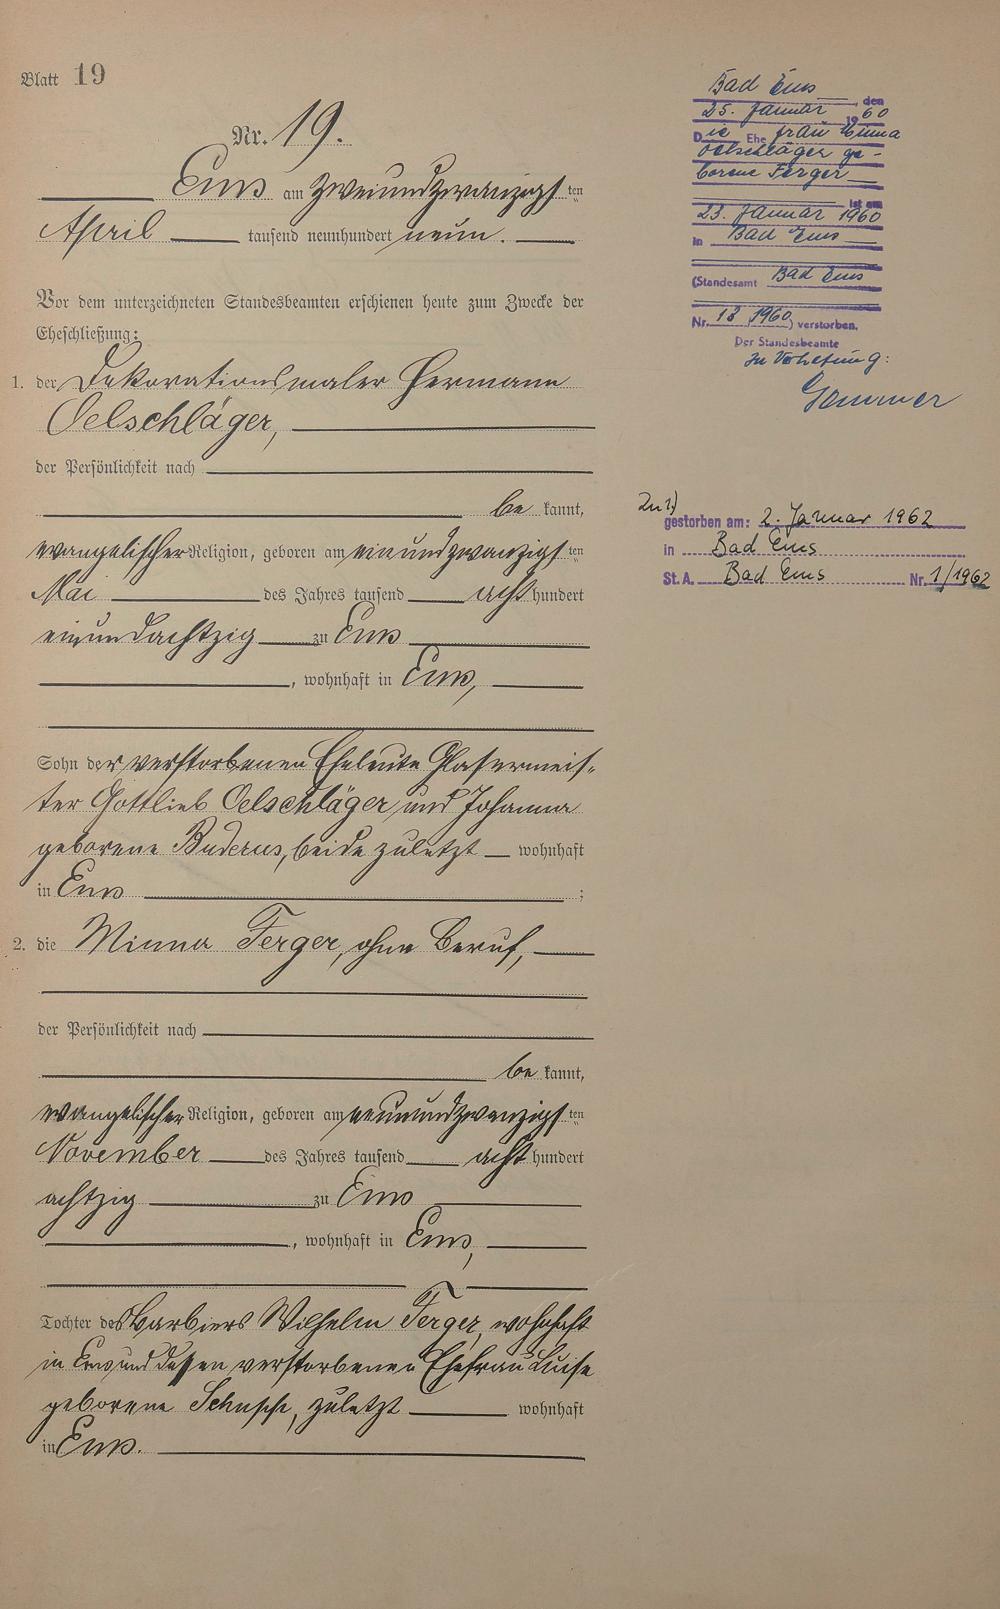 Blatt 19
Nr. 19.
Ems am zweiundzwanzigsten
April tausend neunhundert neun.
Vor dem unterzeichneten Standesbeamten erschienen heute zum Zwecke der
Eheschließung:
1. der Dekorationsmaler Hermann
Oelschläger,
der Persönlichkeit nach
be kannt,
evangelischer Religion, geboren am einundzwanzigsten
Mai des Jahres tausend acht hundert
einundachtzig zu Ems
, wohnhaft in Ems,
Sohn der verstorbenen Eheleute Glasermeis-
ter Gottlieb Oelschläger und Johanna
geborene Buderus, beide zuletzt wohnhaft
in Ems ;
2. die Minna Ferger, ohne Beruf,
der Persönlichkeit nach
be kannt,
evangelischer Religion, geboren am neunundzwanzigsten
November des Jahres tausend acht hundert
achtzig zu Ems
, wohnhaft in Ems,
Tochter des Barbiers Wilhelm Ferger, wohnhaft
in Ems und dessen verstorbenen Ehefrau Luise
geborene zuletzt wohnhaft
in Ems.
Bad Ems, den
25. Januar 1960
Die Ehefrau Minna
Oelschläger ge-
borene Ferger
ist am
23. Januar 1960
in Bad Ems
(Standesamt Bad Ems
Nr. 13 1960) verstorben.
Der Standesbeamte
In Vertretung:
Zu 1)
gestorben am: 2. Januar 1962
in Bad Ems
St. A. Bad Ems Nr. 1/1962